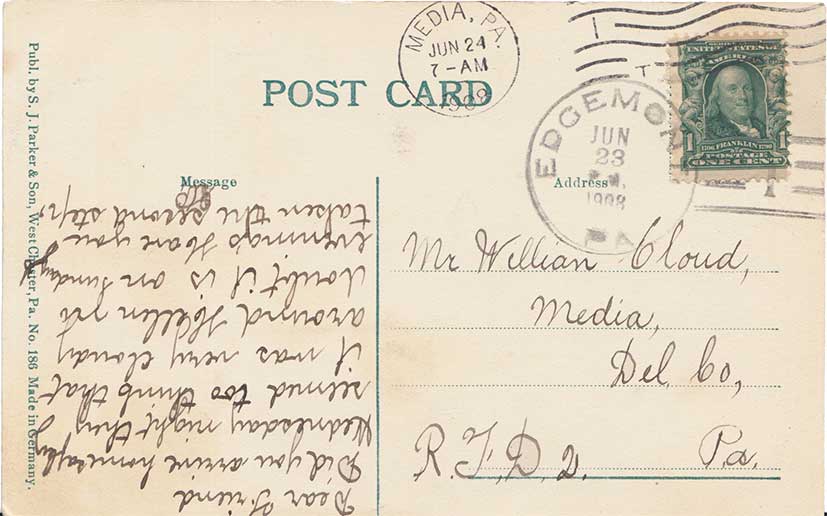 MEDIA, PA.
JUN 24
7-AM
1908
POST CARD
EDGEMON
JUN
23
1908
PA
UNITED STATES OF
AMERICA
1706 FRANKLIN 1790
1 POSTAGE 1
ONE CENT
Message
Dear Friend
Did you arrive home safely
Wednesday night they
seimed too think that
it was very cloudy
around Hellen
doubt it is on Sunday
evenings Have you
taken the second step.
Address
Mr Willian Cloud,
Media,
Del. Co,
R.F.D 2. Pa.
Publ. by S. J. Parker & Son, West Chester, Pa. No. 186 Made in Germany.